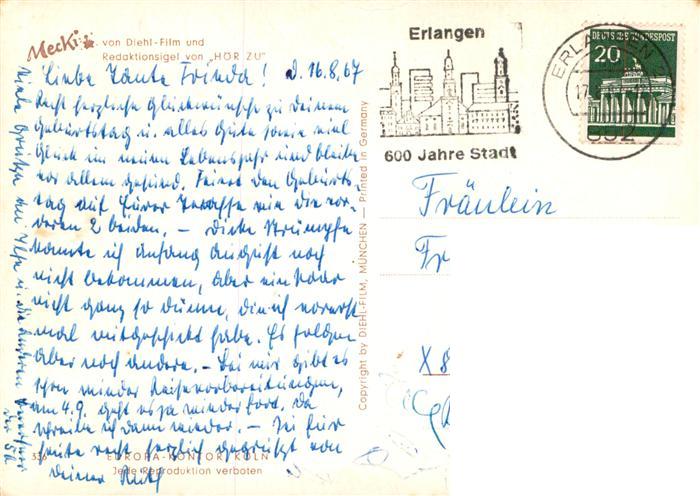 Mecki von Diehl-Film und
Redaktionsigel von "HÖR ZU"
Liebe Tante Frieda! d. 16.8.67
Recht herzliche Glückwünsche zu Deinem
Geburtstag u. alles Gute sowie viel
Glück im neuen Lebensjahr und bleibe
vor allem gesund. Feiert den Geburts-
tag auf Eurer Terasse wie die vor-
deren 2 beiden. - Dicke Strümpfe
konnte ich Anfang August noch
nicht bekommen, aber ein Paar
nicht ganz so dünne, die ich vorerst
mal mitgeschickt habe. Es folgen
aber noch andere. - Bei mir gibt es
schon wieder Reisevorbereitungen,
am 4.9. geht es ja wieder fort. Da
schreibe ich dann wieder. - Sei für
heute recht herzlich gegrüßt von
Deiner Ruth
Viele Grüße an Ilse u. die anderen
336 EUROPA-KONTOR KÖLN
Jede Reproduktion verboten
Copyright by DIEHL-FILM, MÜNCHEN — Printed in Germany
Erlangen
600 Jahre Stadt
ERLANGEN
17.
852
DEUTSCHE BUNDESPOST
20
Fräulein
Fr
X 8